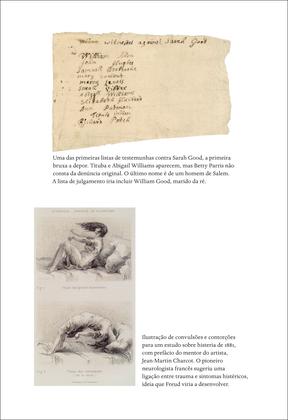 witnesses against Sarah Good
William Allen
John Hughes
Samuell
mary
Sarah
Abigail Williams
Elizabeth
Ann Putnam
Tituba
Richard Patch
Uma das primeiras listas de testemunhas contra Sarah Good, a primeira
bruxa a depor. Tituba e Abigail Williams aparecem, mas Betty Parris não
consta da denúncia original. O último nome é de um homem de Salem.
A lista de julgamento iria incluir William Good, marido da ré.
Ilustração de convulsões e contorções
para um estudo sobre histeria de 1881,
com prefácio do mentor do artista,
Jean-Martin Charcot. O pioneiro
neurologista francês sugeriu uma
ligação entre trauma e sintomas histéricos,
ideia que Freud viria a desenvolver.